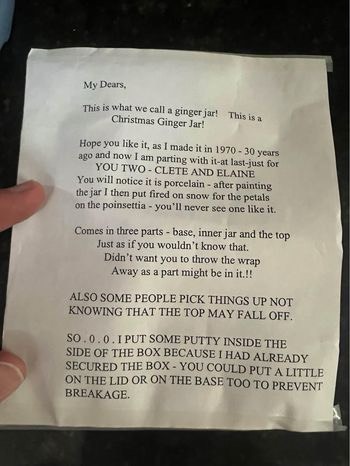 My Dears,
This is what we call a ginger jar! This is a
Christmas Ginger Jar!
Hope you like it, as I made it in 1970 - 30 years
ago and now I am parting with it-at last-just for
YOU TWO - CLETE AND ELAINE
You will notice it is porcelain - after painting
the jar I then put fired on snow for the petals
on the poinsettia - you'll never see one like it.
Comes in three parts - base, inner jar and the top
Just as if you wouldn't know that.
Didn't want you to throw the wrap
Away as a part might be in it.!!
ALSO SOME PEOPLE PICK THINGS UP NOT
KNOWING THAT THE TOP MAY FALL OFF.
SO . 0 . 0 . I PUT SOME PUTTY INSIDE THE
SIDE OF THE BOX BECAUSE I HAD ALREADY
SECURED THE BOX - YOU COULD PUT A LITTLE
ON THE LID OR ON THE BASE TOO TO PREVENT
BREAKAGE.